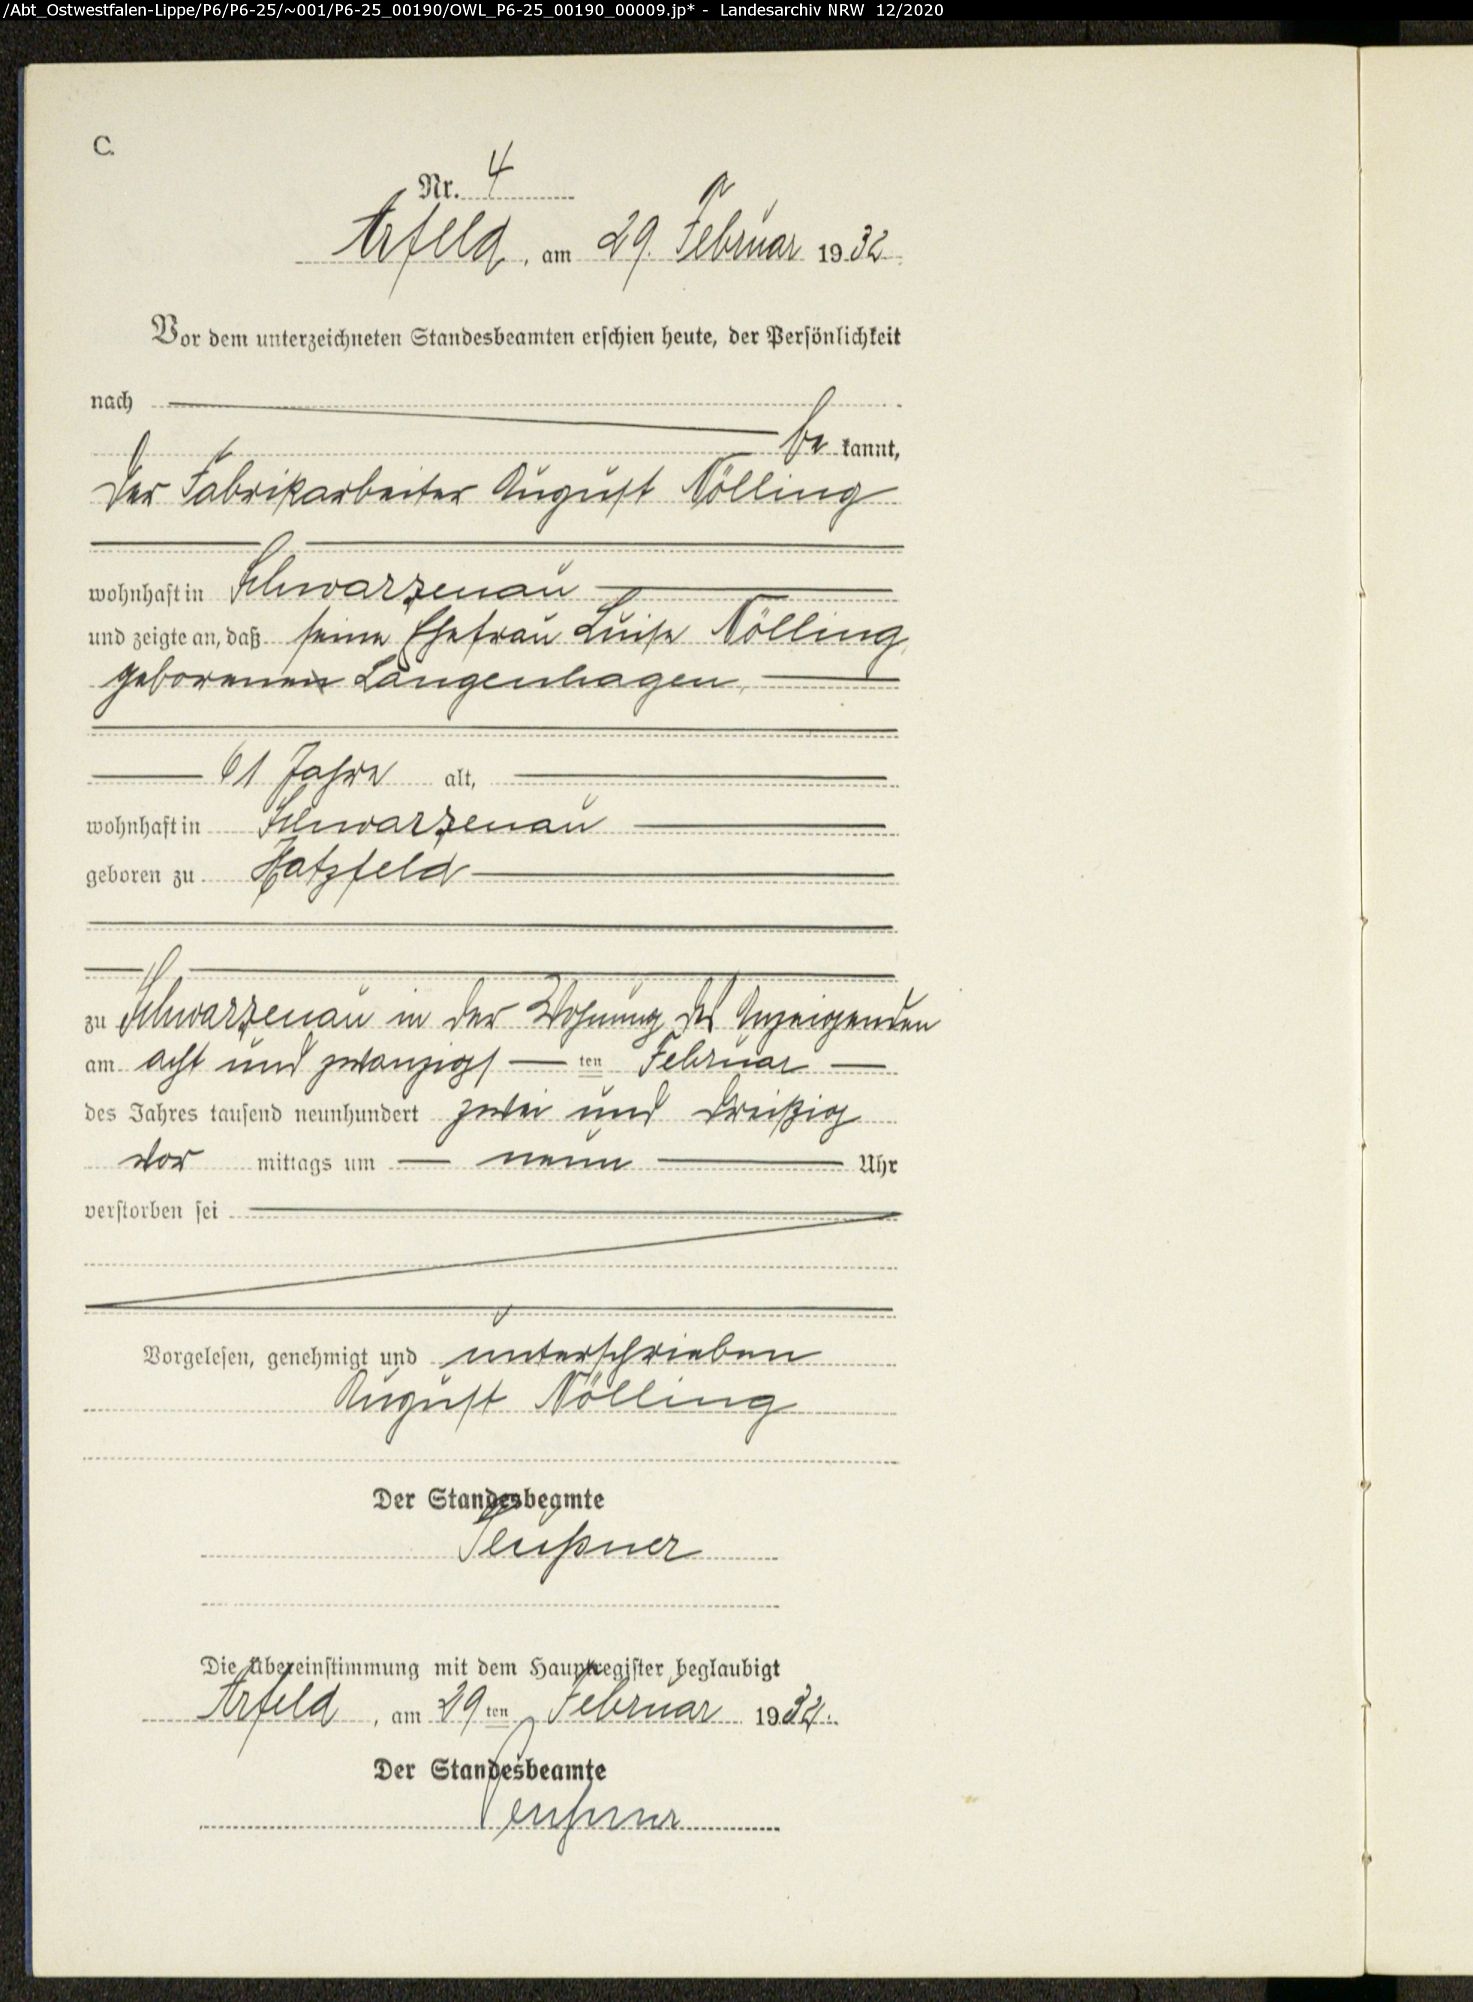 /Abt_Ostwestfalen-Lippe/P6/P6-25/~001/P6-25_00190/OWL_P6-25_00190_00009.jp* - Landesarchiv NRW 12/2020
C.
Nr. 4
Arfeld, am 29. Februar 1932
Vor dem unterzeichneten Standesbeamten erschien heute, der Persönlichkeit
nach
be kannt,
der Fabrikarbeiter August Nölling
wohnhaft in Schwarzenau
und zeigte an, daß seine Ehefrau Luise Nölling,
geborenen Langenhagen,
61 Jahre alt,
wohnhaft in Schwarzenau
geboren zu Hatzfeld
zu Schwarzenau in der Wohnung des Anzeigenden
am acht und zwanzigs ten Februar
des Jahres tausend neunhundert zwei und dreißig
vor mittags um neun Uhr
verstorben sei
Vorgelesen, genehmigt und unterschrieben
August Nölling
Der Standesbeamte
Die Übereinstimmung mit dem Hauptregister beglaubigt
Arfeld, am 29 ten Februar 1932.
Der Standesbeamte